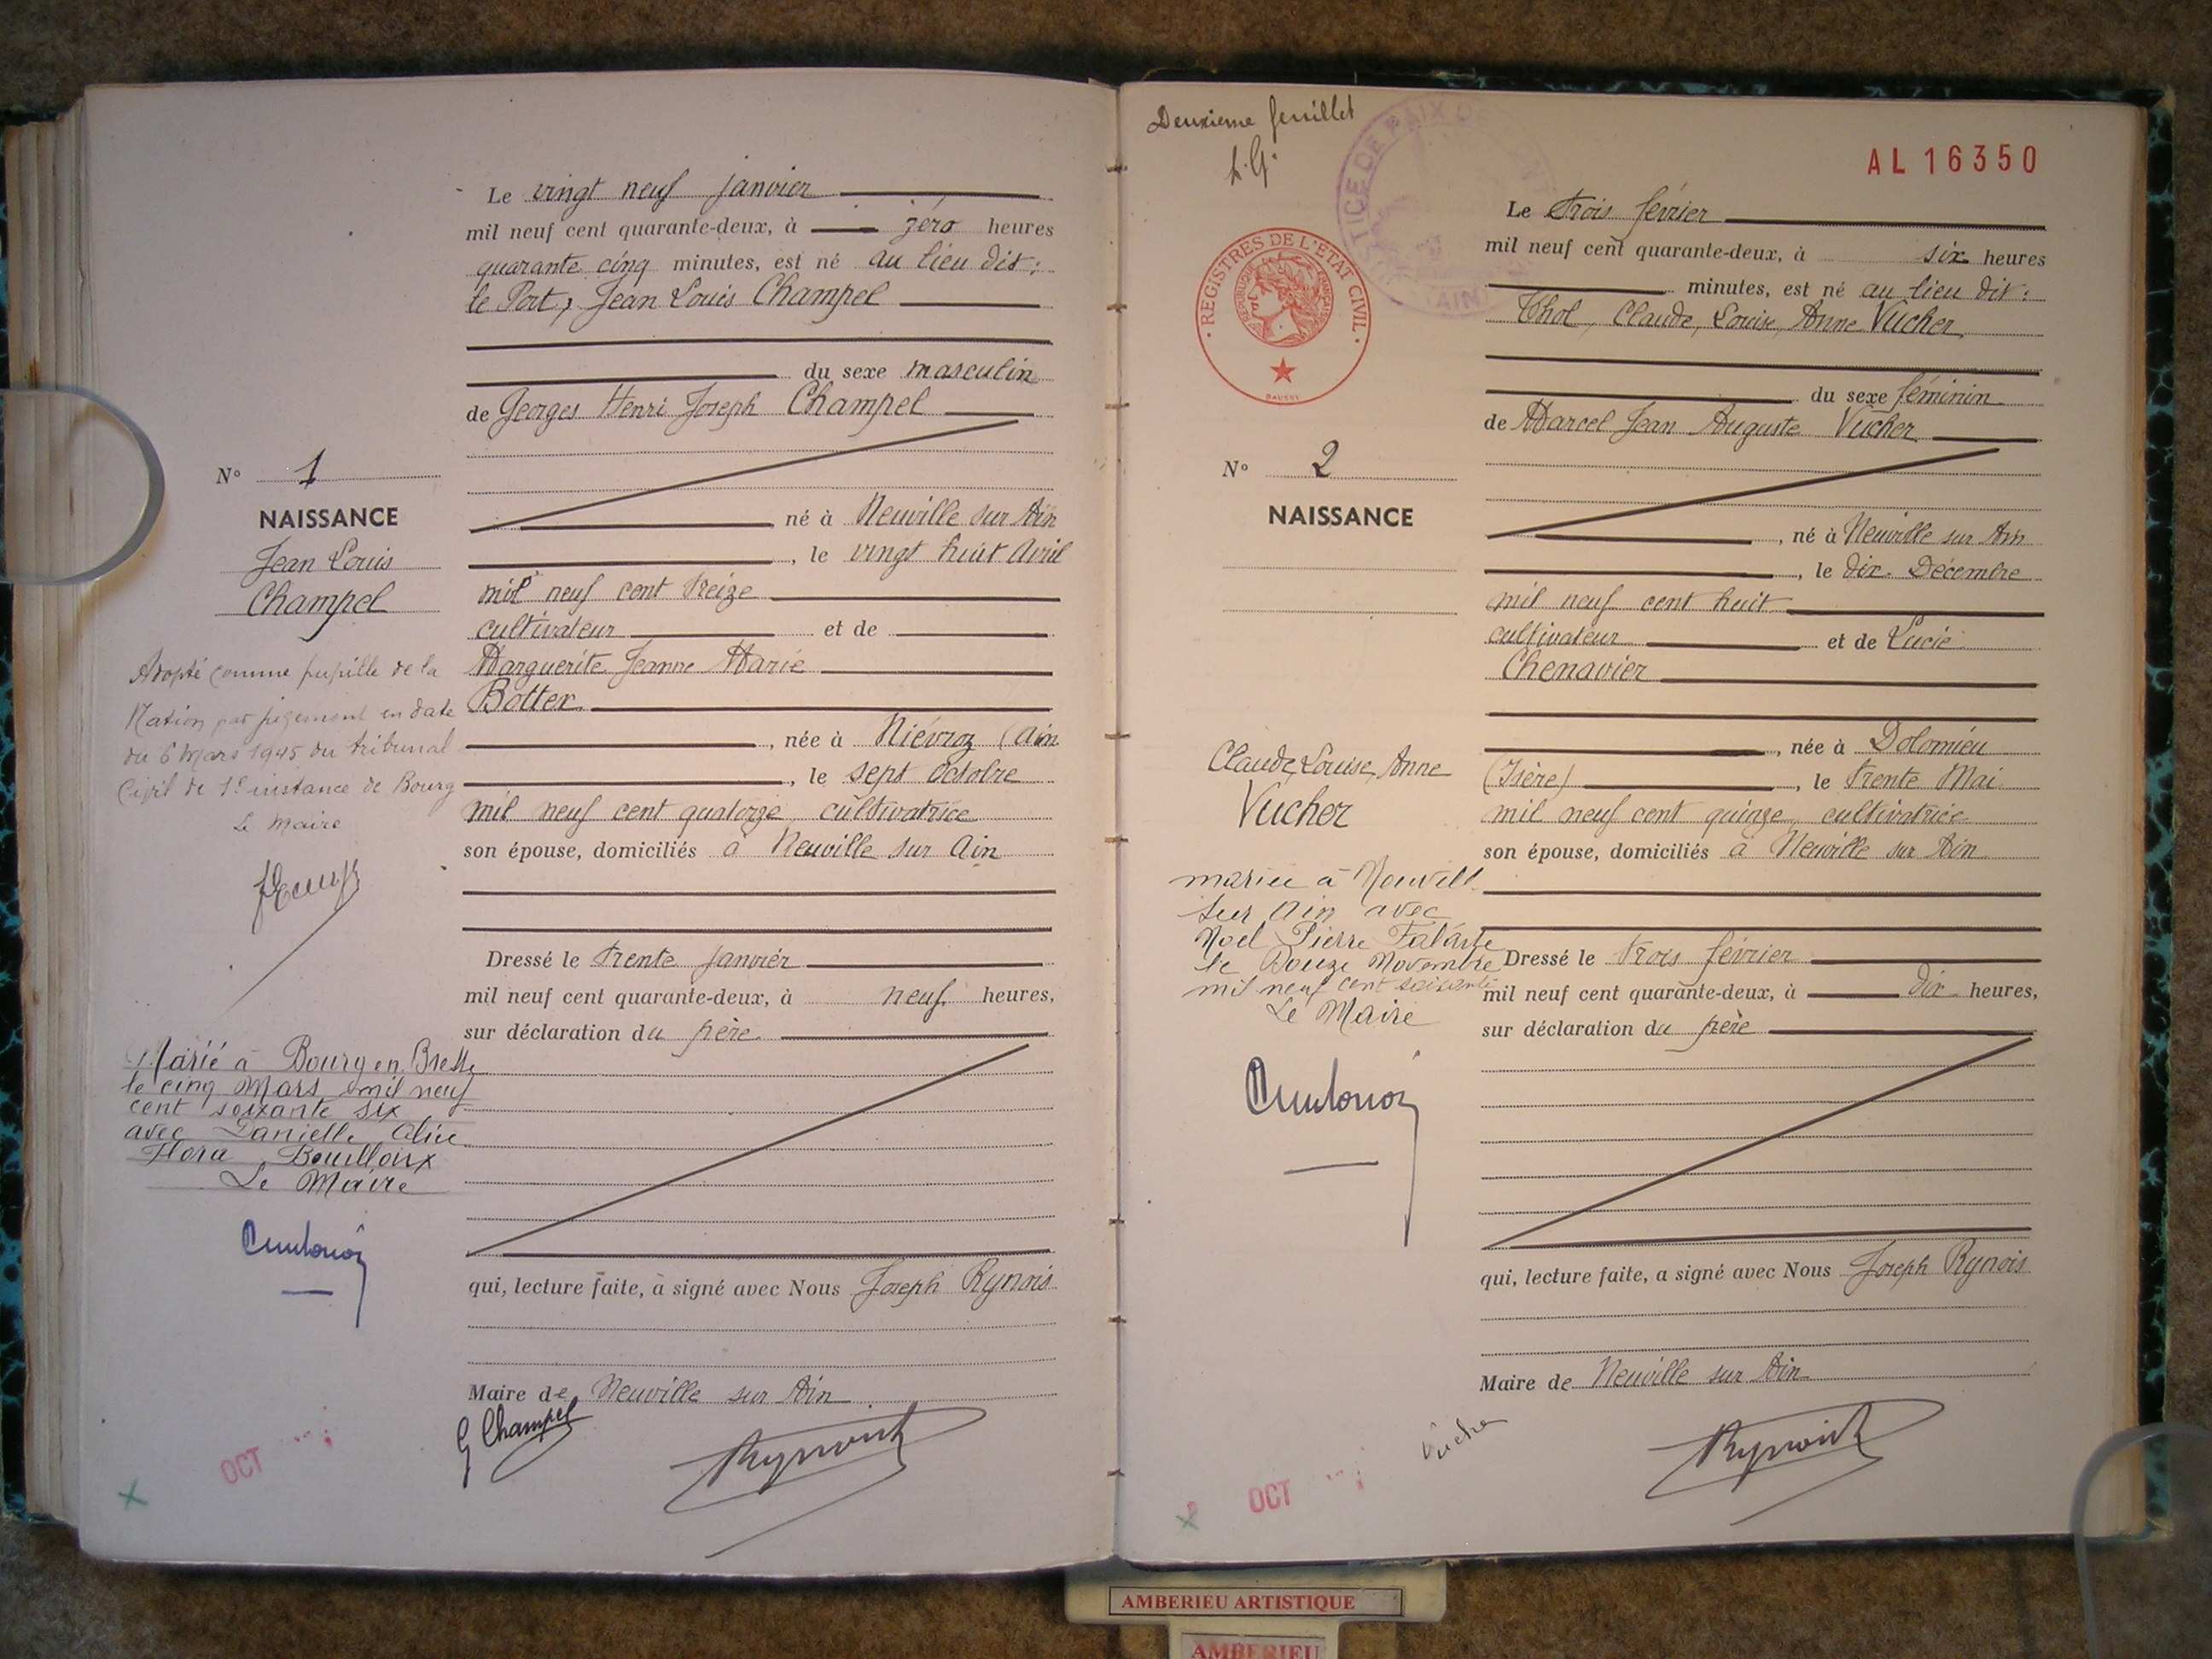 Le vingt neuf janvier
mil neuf cent quarante-deux, à zéro heures
quarante cinq minutes, est né au lieu dit:
le Port, Jean Louis Champel
du sexe masculin
de Georges Henri Joseph Champel
né à Neuville sur Ain
, le vingt huit Avril
mil neuf cent treize
cultivateur et de
Marguerite Jeanne Marie
Botter
, née à Niévroz (Ain
, le sept Octobre
mil neuf cent quatorze, cultivatrice
son épouse, domiciliés à Neuville sur Ain
Dressé le trente janvier
mil neuf cent quarante-deux, à neuf heures,
sur déclaration du père.
qui, lecture faite, a signé avec Nous Joseph Rynois
Maire de Neuville sur Ain
G Champel
N° 1
NAISSANCE
Jean Louis
Champel
Adopté comme pupille de la
Nation par jugement en date
du 6 Mars 1945 du tribunal
Civil de 1e instance de Bourg
Le Maire
Marié à Bourg en Bresse
le cinq Mars mil neuf
cent soixante six
avec Danielle Aline
Flora Bouilloux
Le Maire
OCT
Deuxième feuillet
L.G.
AL 16350
REGISTRES DE L'ETAT CIVIL
Le trois février
mil neuf cent quarante-deux, à six heures
minutes, est né au lieu dit:
Thol, Claude, Louise, Anne Vucher
du sexe féminin
de Marcel Jean Auguste Vucher
, né à Neuville sur Ain
, le dix Décembre
mil neuf cent huit
cultivateur et de Lucie
Chenavier
, née à Dolomieu
(Isère), le trente Mai
mil neuf cent quinze, cultivatrice
son épouse, domiciliés à Neuville sur Ain
Dressé le trois février
mil neuf cent quarante-deux, à dix heures,
sur déclaration du père
qui, lecture faite, a signé avec Nous Joseph Rynois
Maire de Neuville sur Ain
Vucher
N° 2
NAISSANCE
Claude, Louise, Anne
Vucher
mariée à Neuville
sur Ain avec
Noel Pierre
le Douze Novembre
mil neuf cent soixante
Le Maire
OCT
AMBERIEU ARTISTIQUE
AMBERIEU